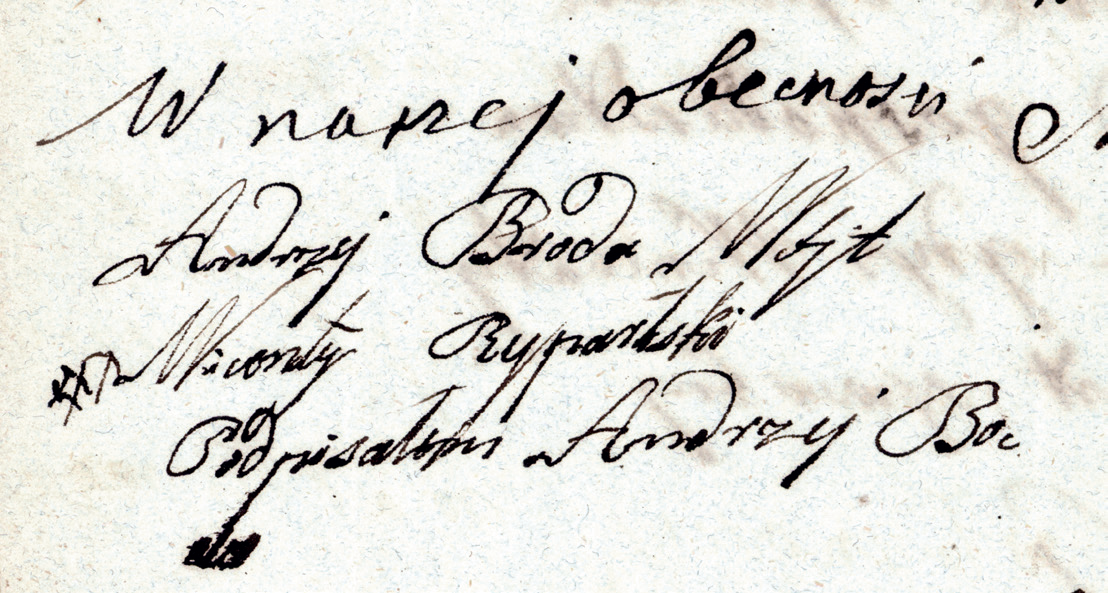 W naszej obecnosci
Andrzej Broda Wójt
Wicenty Rypalski
Podpisałem Andrzej Boc